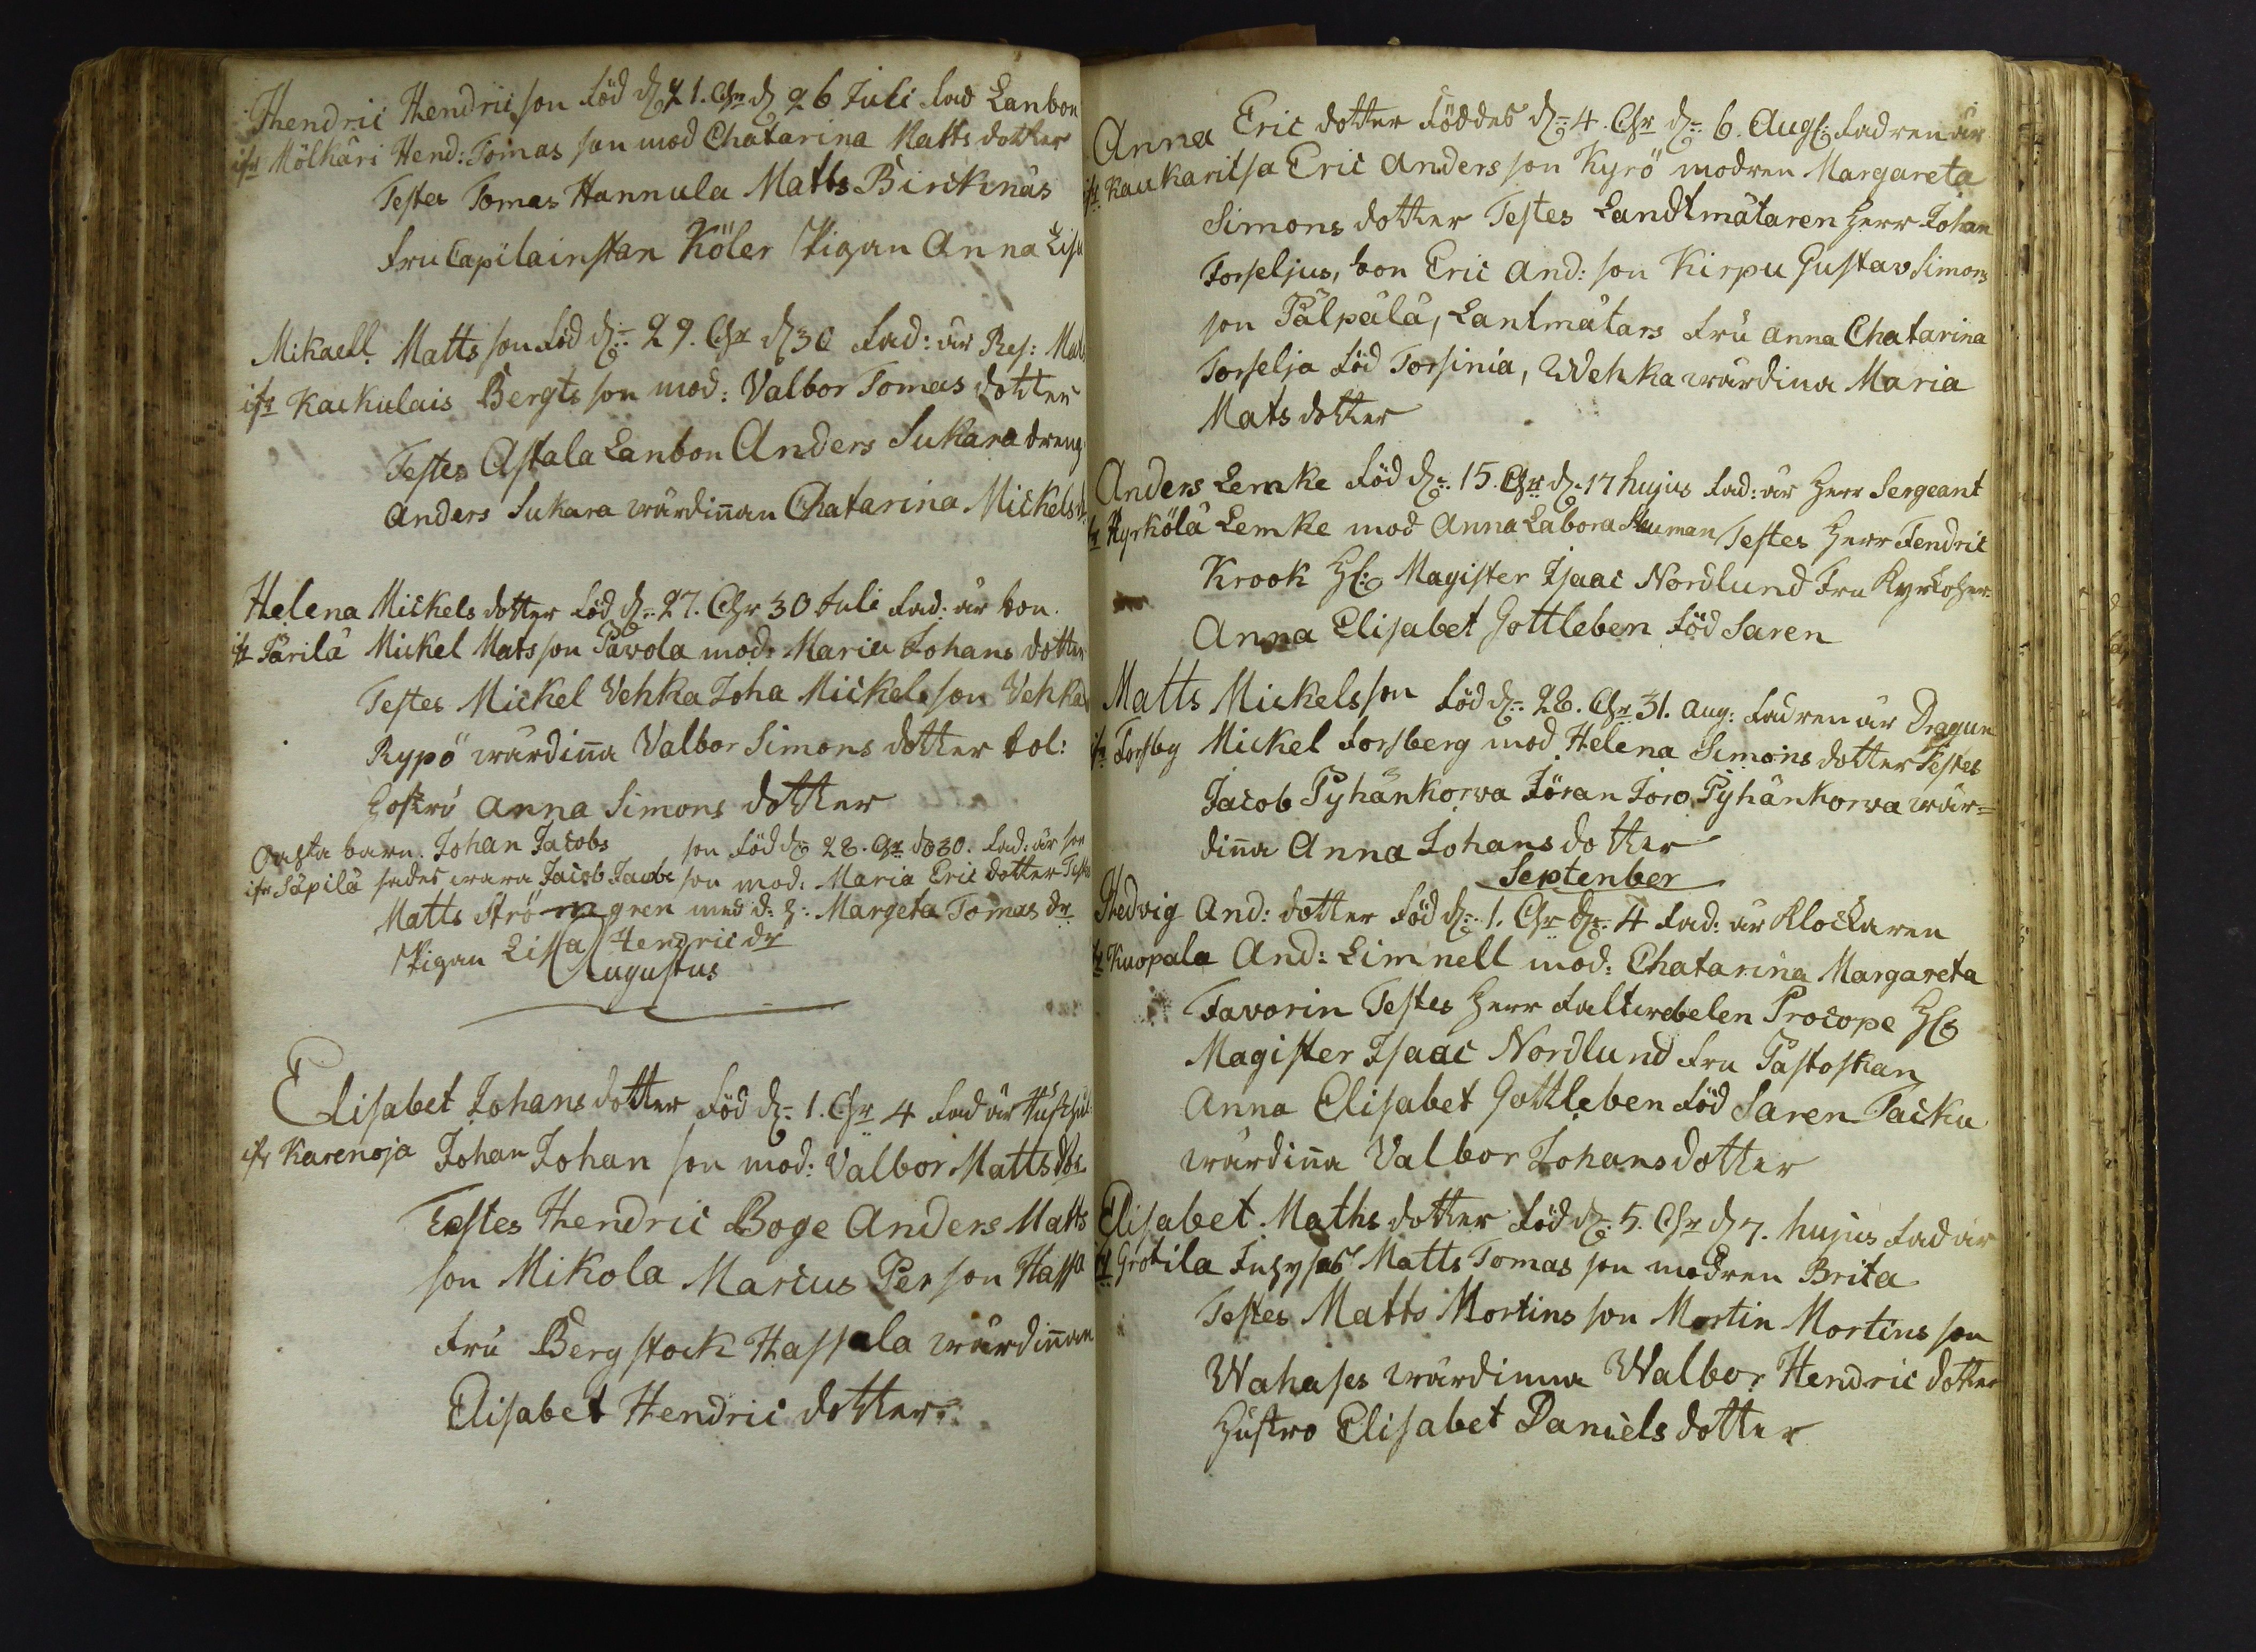 Hendric Hendric son Föd d 21. Chr d 26 Juli Fad Lanbon
ifr Mölkäri Hend: Tomas son mod Chatarina Matts dotter
Testes Tomas Hannula Matts Birckenäs
Fru Capitainskan Köler Pigan Anna Lisa
Mikaell Matts son Föd d: 29. Chr d 30 Fad: är Res: Matt
ifr Kackulais Bergts son mod: Valbor Tomas dotter
Testes Astala Lanbon Anders Sukara dreng
Anders Sukara wärdinnan Chatarina Mickels
Helena Mickels dotter Föd d: 27. Chr 30 Juli Fad: är bon.
ifr Pärilä Mickel Mats son Pavola mod: Maria Johans dotter
Testes Mickel Vehka Joha Mickels son Vehka
Rypö wärdinna Valbor Simons dotter Sol:
hostro Anna Simons dotter
Oächta barn. Johan Jacobs son Föd d: 28. Chr d 30. Fad: är son
ifr Säpilä sades wara Jacob Jacobs son mod: Maria Eric dotter Testes
Matts Strömgren med d: h: Margeta Tomas dr
Pigan Lissa Hendric dr
Augustus
Elisabet Johans dotter Föd d: 1. Chr 4 Fad är
ifr Karenoja Johan Johan son mod: Valbor Matts dr
Testes Hendric Boge Anders Matts
son Mikola Marcus Person Hassa
Fru Bergstock Hassala wärdinnan
Elisabet Hendric dotter
Anna Eric dotter Föddes d: 4. Chr d: 6. Augs: Fadren är
ifr Kaukaritsa Eric Anders son Kyrö modren Margareta
Simons dotter Testes Landtmätaren Herr Johan
Forseljus, bon Eric And: son Kirpu Gustav Simons
son Pälpälä, Lantmätars Fru Anna Chatarina
Forselja Föd Forsinia, Wehka wärdina Maria
Mats dotter
Anders Lemke Föd d: 15. Chr d. 17 hujus Fad: är Herr Sergeant
ifr Kyrkölä Lemke mod Anna Labora Neuman Testes Herr Fendric
Krook Magister Isaac Nordlund Fru Kyrkoher:
Anna Elisabet Gottleben Föd Saren
Matts Mickelsson Föd d: 28. Chr 31. Aug: Fadren är Dragun
ifr Forsby Mickel Forsberg mod Helena Simons dotter Testes
Jacob Pyhänkorva Jöran Joro Pyhänkorva wär=
dinna Anna Johans dotter
Septenber
Hedvig And: dotter Föd d: 1. Chr d: 4 Fad: är Klockaren
ifr Kuopala And: Limnell mod: Chatarina Margareta
Favorin Testes Herr Faltwebelen Procope
Magister Isaac Nordlund Fru Pastorskan
Anna Elisabet Gottleben Föd Saren Packu
wärdinna Valbor Johans dotter
Elisabet Maths dotter Föd d: 5. Chr d 7. hujus Fad är
ifr Grotila Inhyses Matts Tomas son modren Brita
Testes Matts Mortins son Mortin Mortins son
Wahases wärdinna Walbor Hendric dotter
Hustro Elisabet Daniels dotter